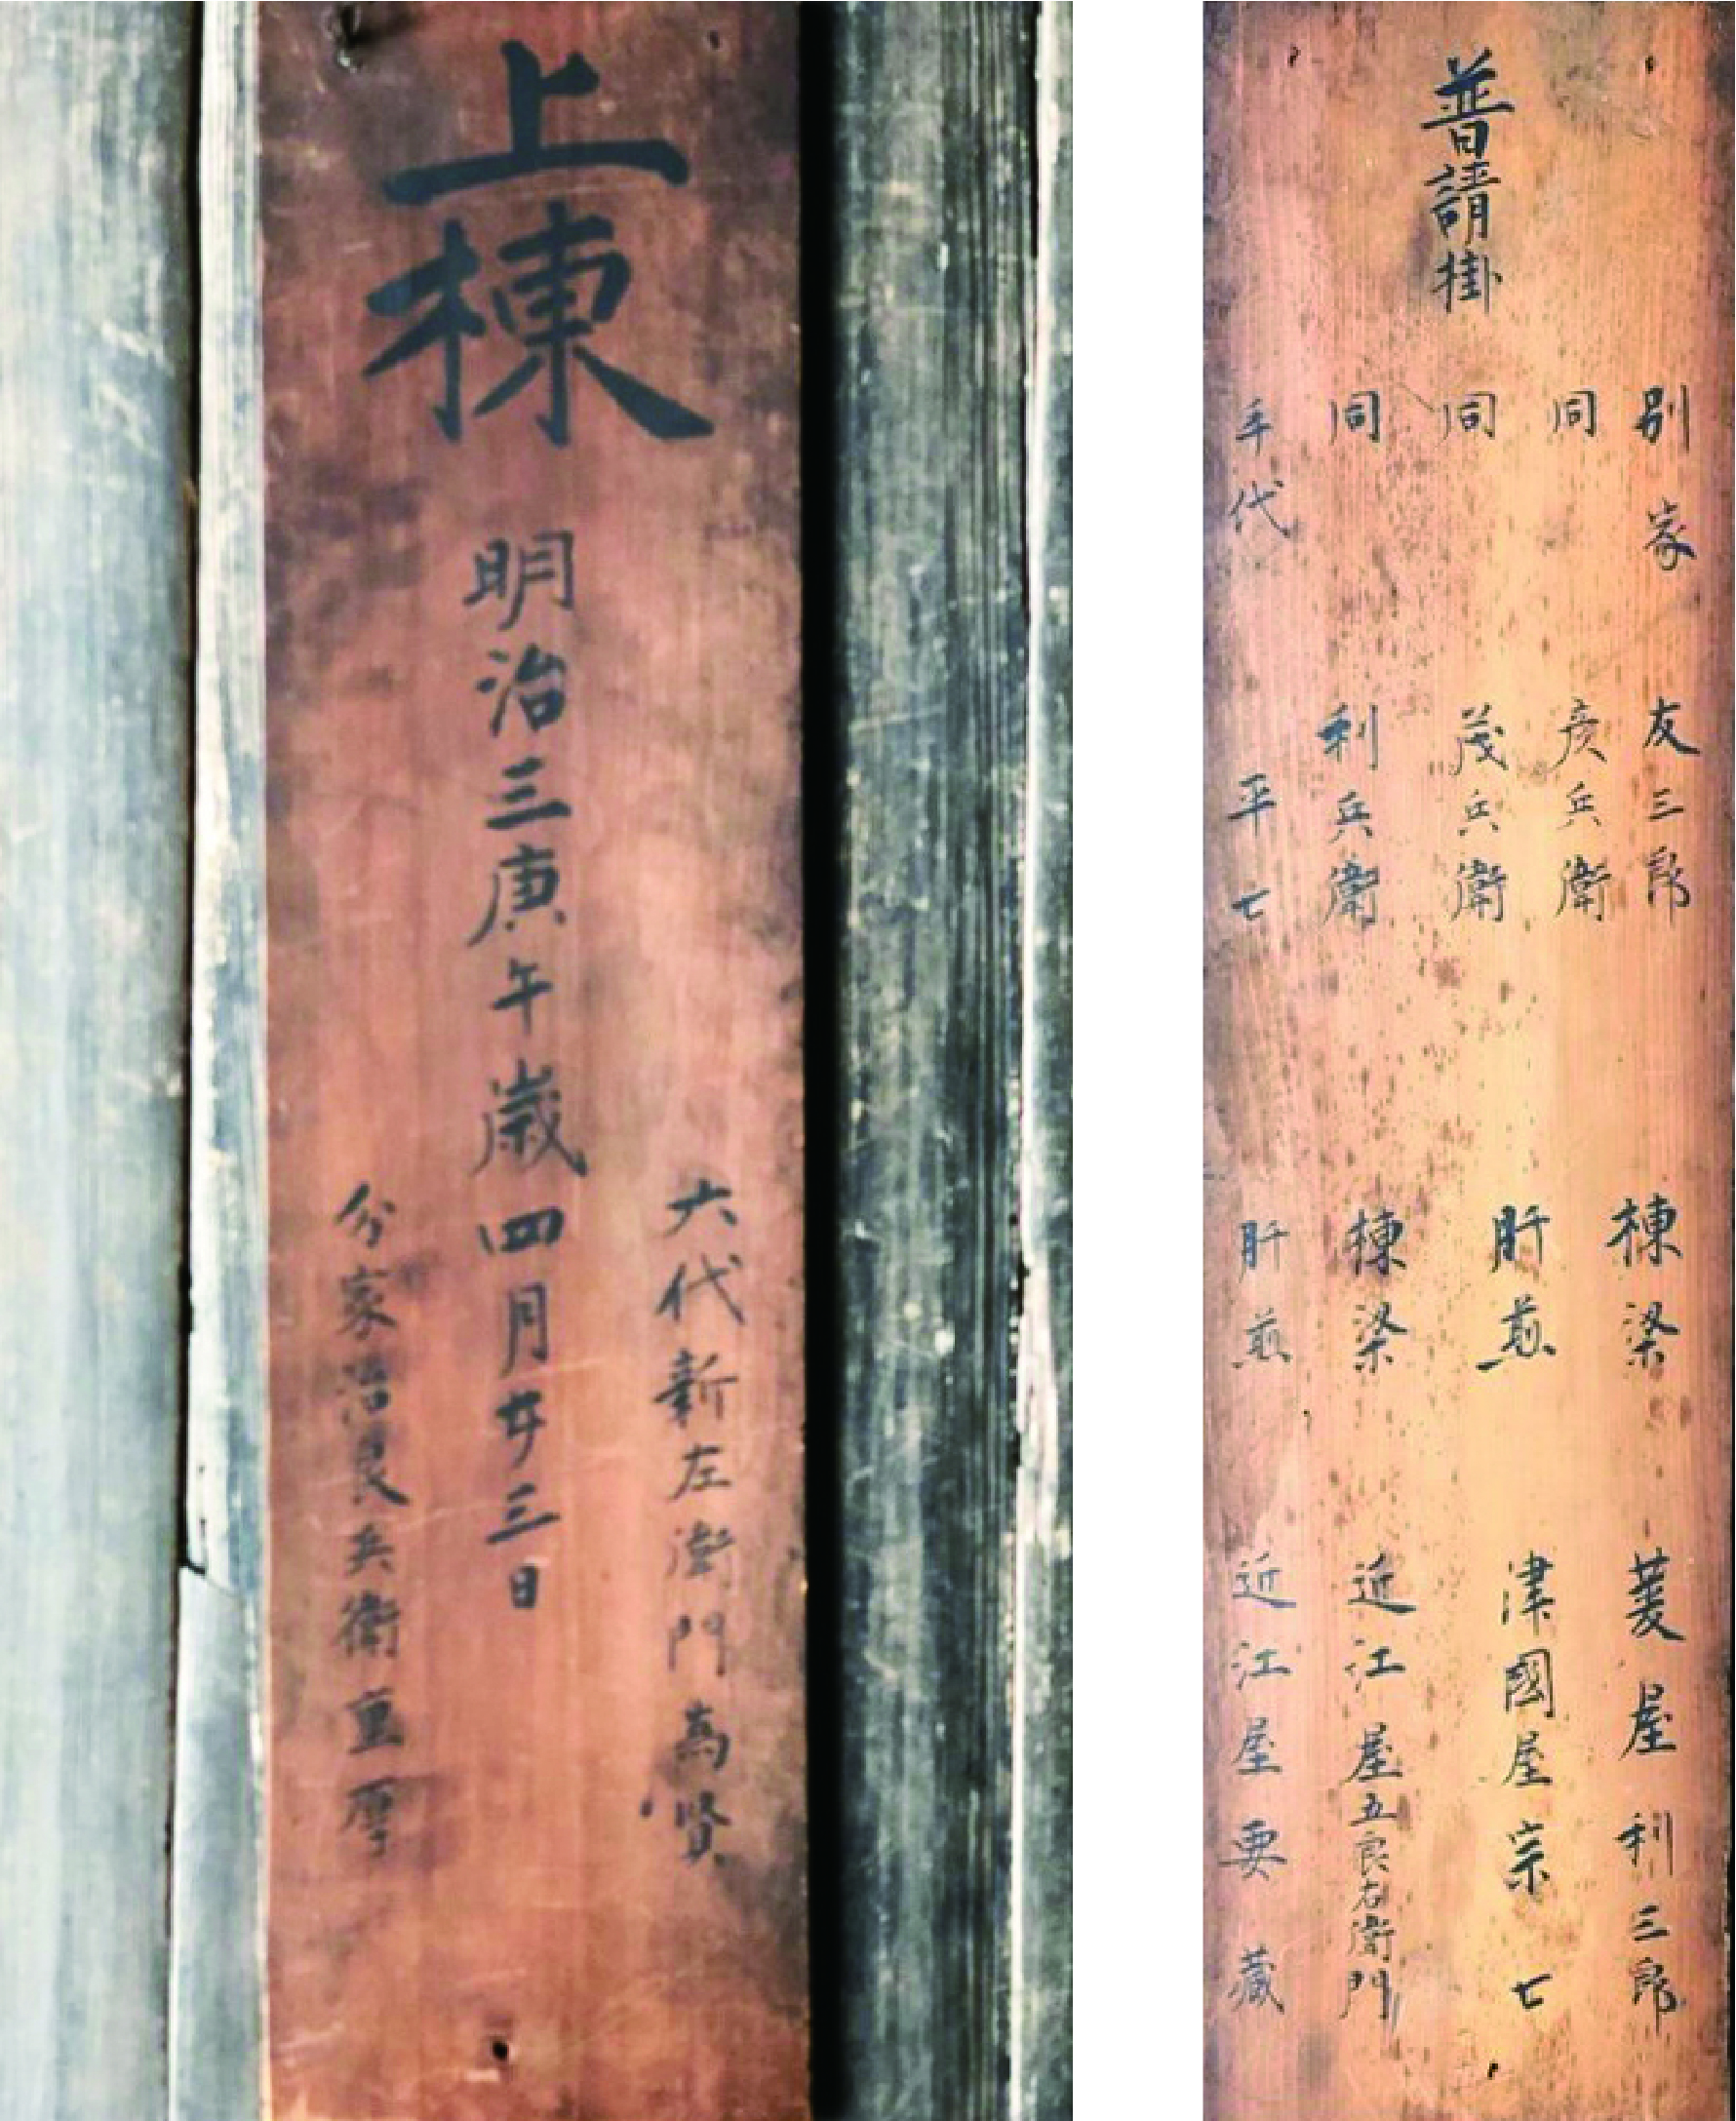 上棟
明治三庚午歳四月廿三日
六代新左衛門高賢
分家治良兵衛重厚
普請掛
別家 友三郎
同 彦兵衛
同 茂兵衛
同 利兵衛
手代 平七
棟梁 菱屋利三郎
肝煎 津國屋宗七
棟梁 近江屋五良右衛門
肝煎 近江屋要藏